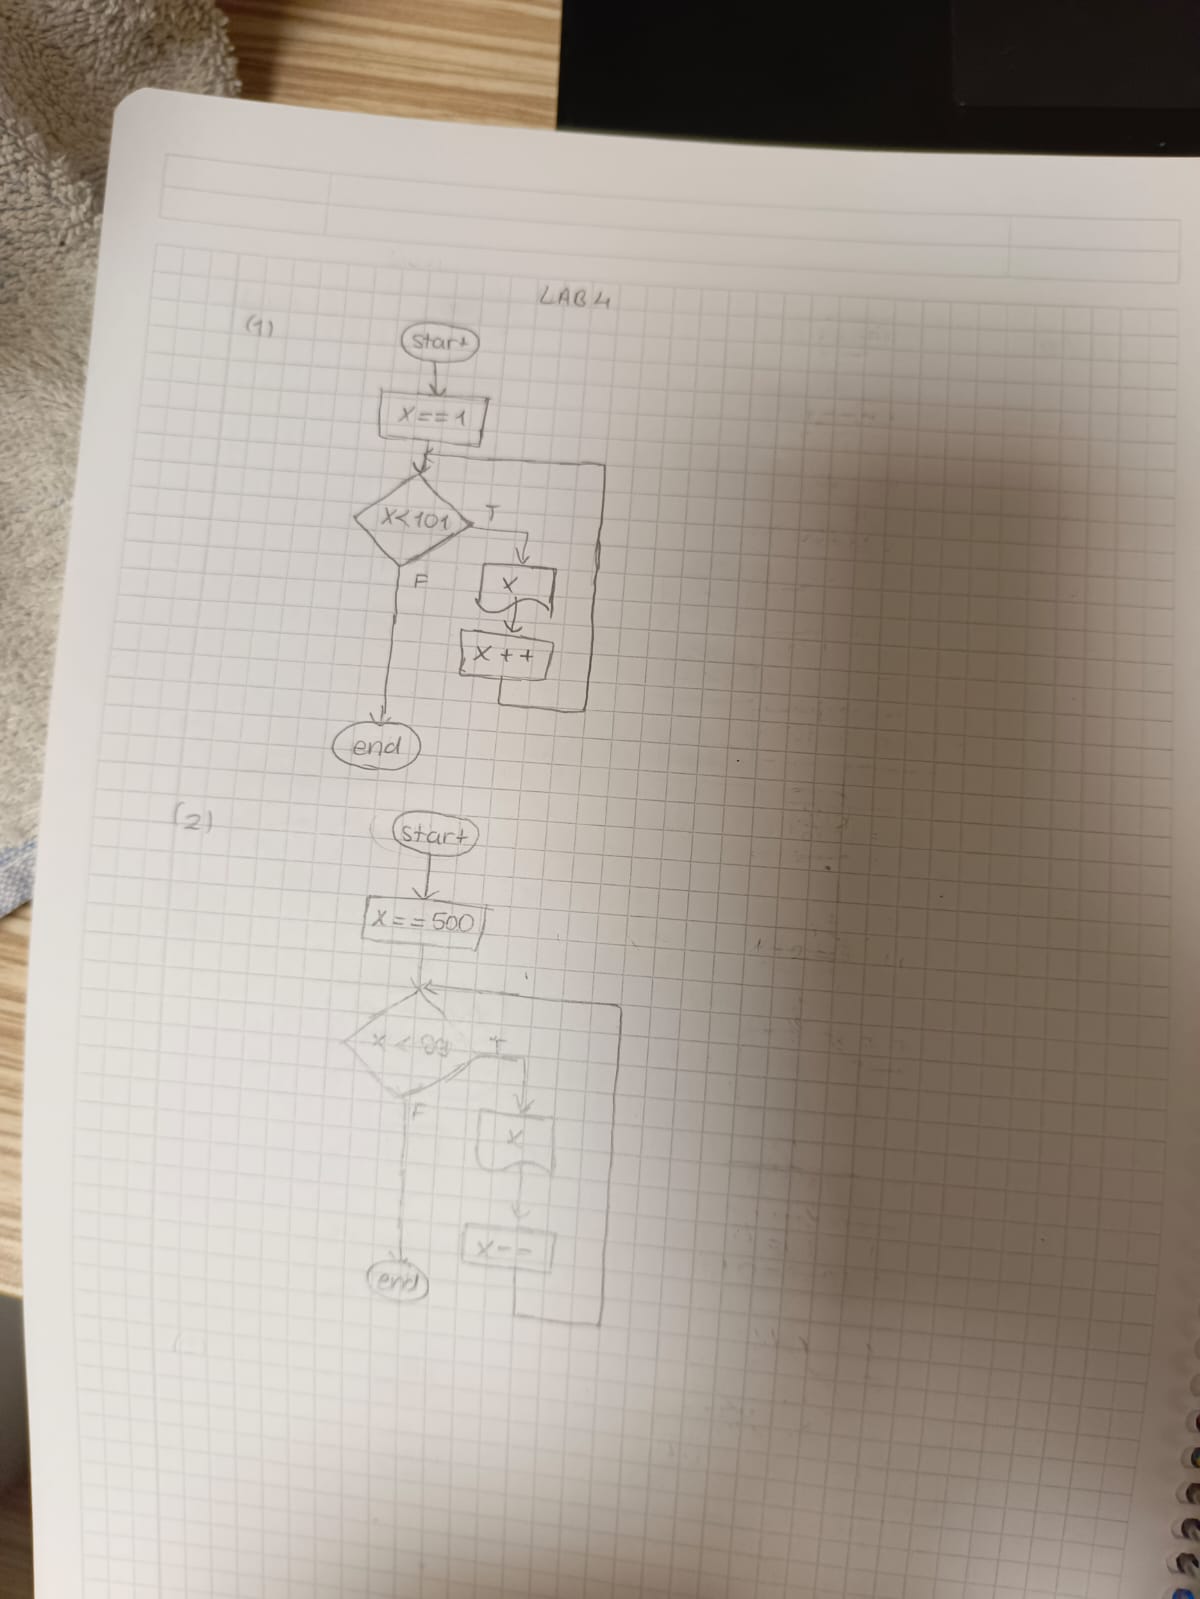 LAB 4
(1)
start
x==1
x<101
T
F
x
x++
end
(2)
start
x==500
x<99
T
F
x
x--
end